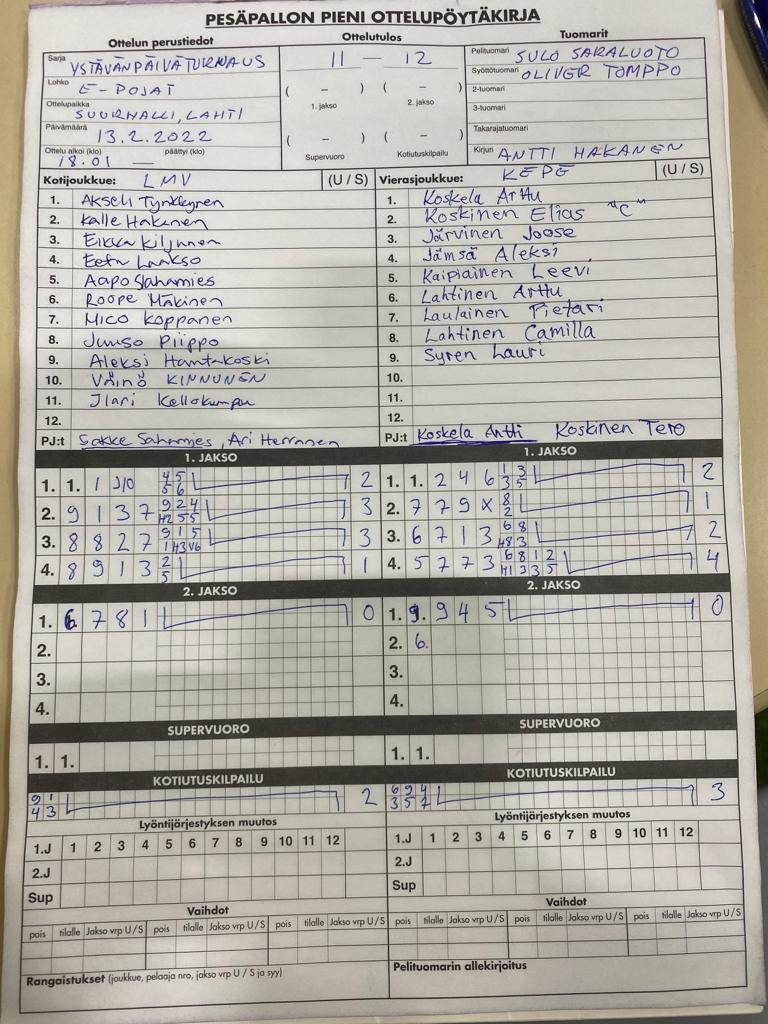 PESÄPALLON PIENI OTTELUPÖYTÄKIRJA
Ottelun perustiedot
Sarja YSTÄVÄNPÄIVÄTURNAUS
Lohko E-POJAT
Ottelupaikka SUURHALLI, LAHTI
Päivämäärä 13.2.2022
Ottelu alkoi (klo) 18.01 — päättyi (klo)
Ottelutulos
11 — 12
( – ) ( – )
1. jakso 2. jakso
( – ) ( – )
Supervuoro Kotiutuskilpailu
Tuomarit
Pelituomari SULO SARALUOTO
Syöttötuomari OLIVER TOMPPO
2-tuomari
3-tuomari
Takarajatuomari
Kirjuri ANTTI HAKANEN
Kotijoukkue: LMV (U / S)
1. Akseli Tynkkynen
2. Kalle Hakanen
3. Eikka Kiljunen
4. Eetu Laakso
5. Aapo Sahamies
6. Roope Mäkinen
7. Mico Koppanen
8. Juuso Piippo
9. Aleksi Hantakoski
10. Väinö KINNUNEN
11. Ilari Kellokumpu
12.
PJ:t Sakke Sahamies, Ari Herranen
Vierasjoukkue: KEPE (U / S)
1. Koskela Arttu
2. Koskinen Elias "C"
3. Järvinen Joose
4. Jämsä Aleksi
5. Kaipiainen Leevi
6. Lahtinen Arttu
7. Laulainen Pietari
8. Lahtinen Camilla
9. Syren Lauri
10.
11.
12.
PJ:t Koskela Antti Koskinen Tero
1. JAKSO
1. 1. 1 2
2. 9 1 3 7 3
3. 8 8 2 7 3
4. 8 9 1 3 2 5 1
2. JAKSO
1. 6. 7 8 1 0
2.
3.
4.
SUPERVUORO
1. 1.
KOTIUTUSKILPAILU
9 1 4 3 2
Lyöntijärjestyksen muutos
1.J 1 2 3 4 5 6 7 8 9 10 11 12
2.J
Sup
Vaihdot
pois tilalle Jakso vrp U / S pois tilalle Jakso vrp U / S pois tilalle Jakso vrp U / S
Rangaistukset (joukkue, pelaaja nro, jakso vrp U / S ja syy)
1. JAKSO
1. 1. 2 4 6 1 3 3 5 2
2. 7 7 9 X 8 2 1
3. 6 7 1 3 2
4. 5 7 7 3 4
2. JAKSO
1. 9. 9 4 5 0
2. 6.
3.
4.
SUPERVUORO
1. 1.
KOTIUTUSKILPAILU
6 9 4 3 5 7 3
Lyöntijärjestyksen muutos
1.J 1 2 3 4 5 6 7 8 9 10 11 12
2.J
Sup
Vaihdot
pois tilalle Jakso vrp U / S pois tilalle Jakso vrp U / S pois tilalle Jakso vrp U / S
Pelituomarin allekirjoitus